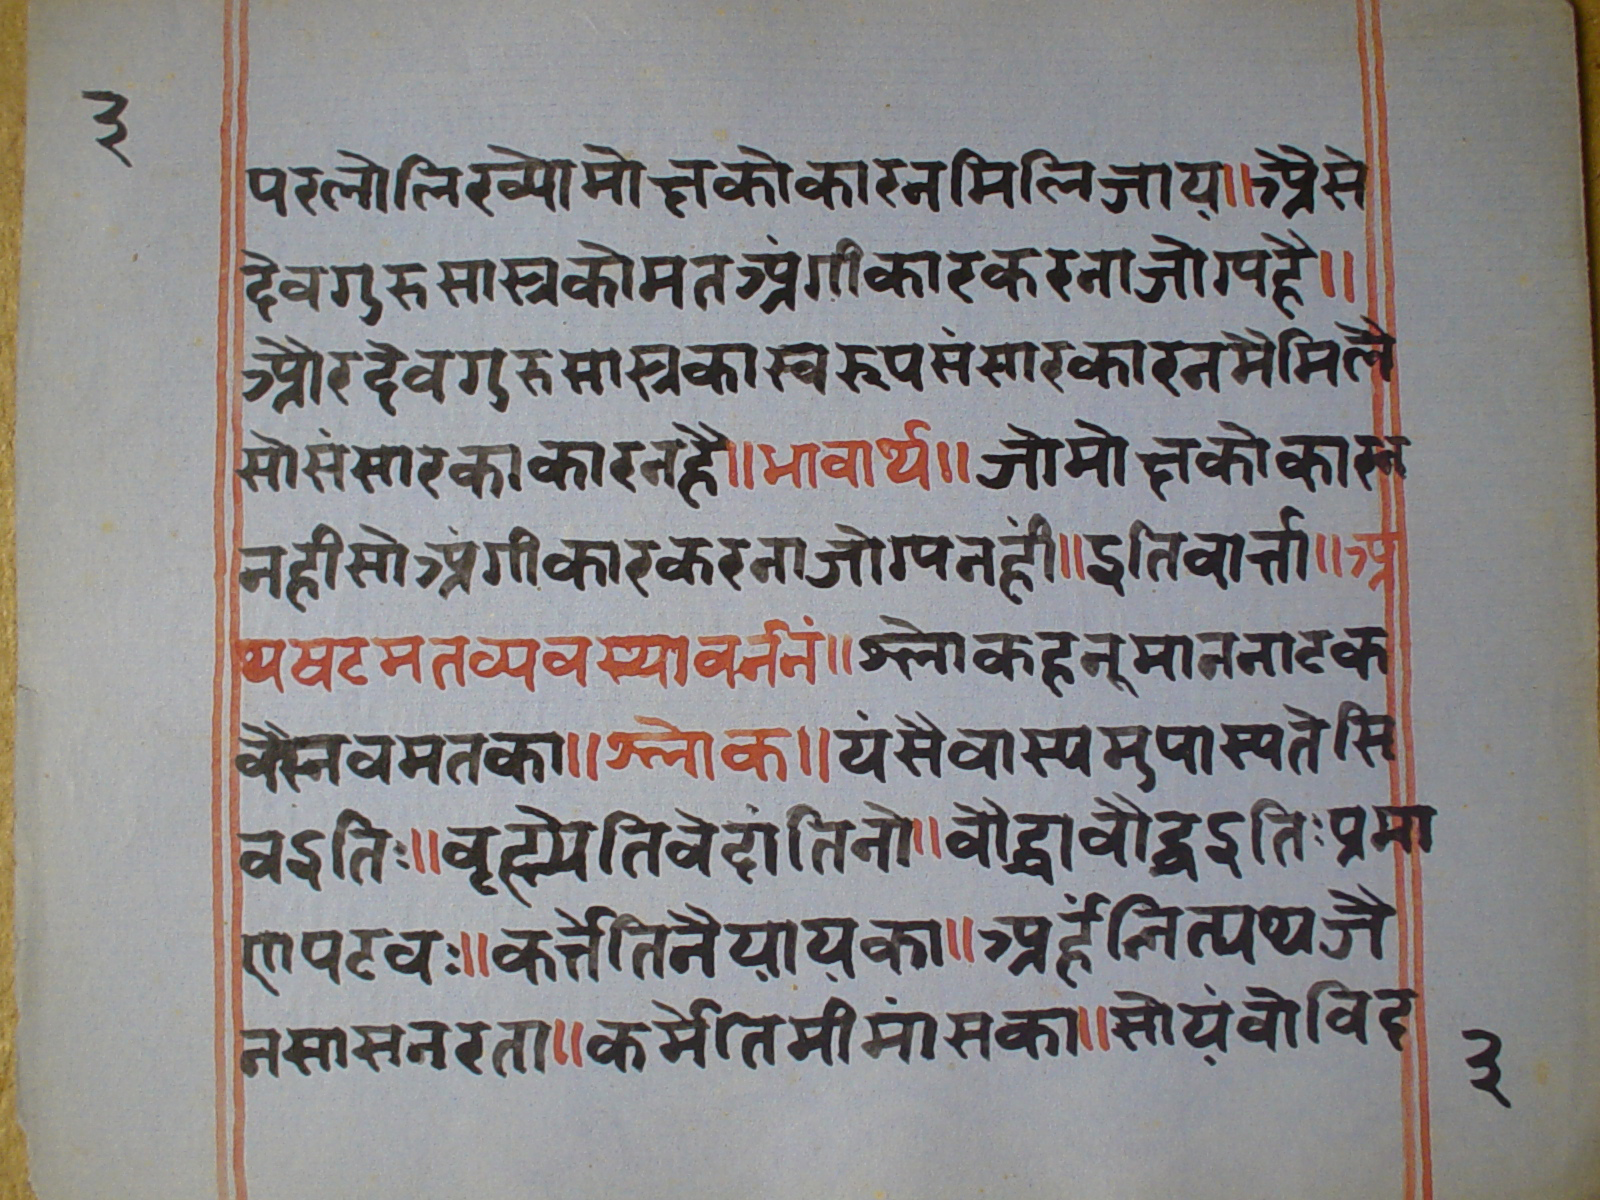 ३
परलोलिख्योमोक्षकोकारनमिलिजाय॥अैसे
देवगुरुसास्त्रकोमतअंगीकारकरनाजोग्यहै॥
औरदेवगुरुसास्त्रकास्वरूपसंसारकारनमैमिलै
सोसंसारकाकारनहै॥भावार्थ॥जोमोक्षकोकारन
नहीसोअंगीकारकरनाजोग्यनहीं॥इतिवार्त्ता॥अ
थषटमतव्यवस्थावर्ननं॥श्लोकहनूमाननाटक
वैस्नवमतका॥श्लोक॥यंसैवास्यमुपास्यतेसि
वइतिः॥वृह्म्येतिवेदांतिनो॥वौद्धावौद्धइतिःप्रमा
णपटवः॥कर्त्तेतिनैयायका॥अर्हंलित्पथजै
नसासनरता॥कर्मेतिमीमांसका॥सोयंवोविद
३